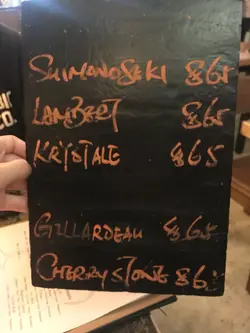 SHIMONOSEKI $65
LAMBERT $65
KRYSTALE $65
GILLARDEAU $65
CHERRYSTONE $6
CO.